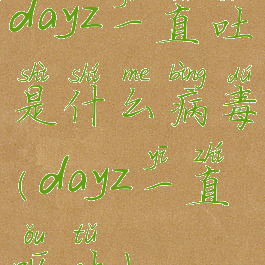 dayz一直吐
shì shí me bìng dú
是什么病毒
yī zhí
(dayz一直
ǒu tǔ